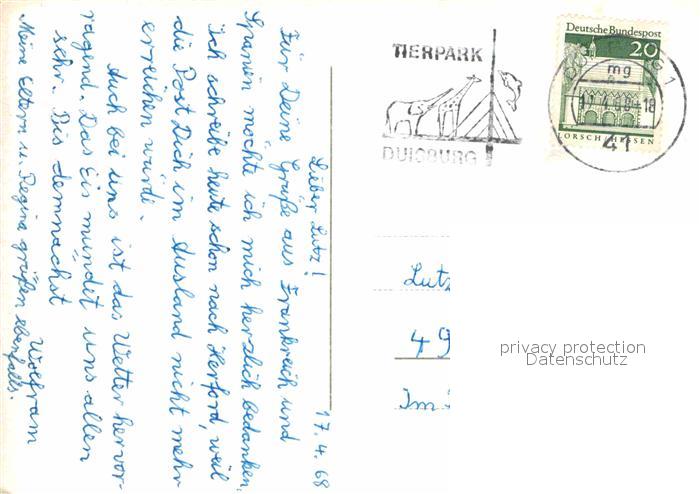 17.4.68
Lieber Lutz!
Für Deine Grüße aus Frankreich und
Spanien möchte ich mich herzlich bedanken.
Ich schreibe heute schon nach Herford, weil
die Post Dich im Ausland nicht mehr
erreichen würde.
Auch bei uns ist das Wetter hervor-
ragend. Das Eis mundet uns allen
sehr. Bis demnächst
Wolfram
Meine Eltern u. Regina grüßen ebenfalls.
TIERPARK
DUISBURG
Deutsche Bundespost
20
LORSCH/HESSEN
1
mg
17.4.68-18
41
Lutz
49
Im
privacy protection
Datenschutz